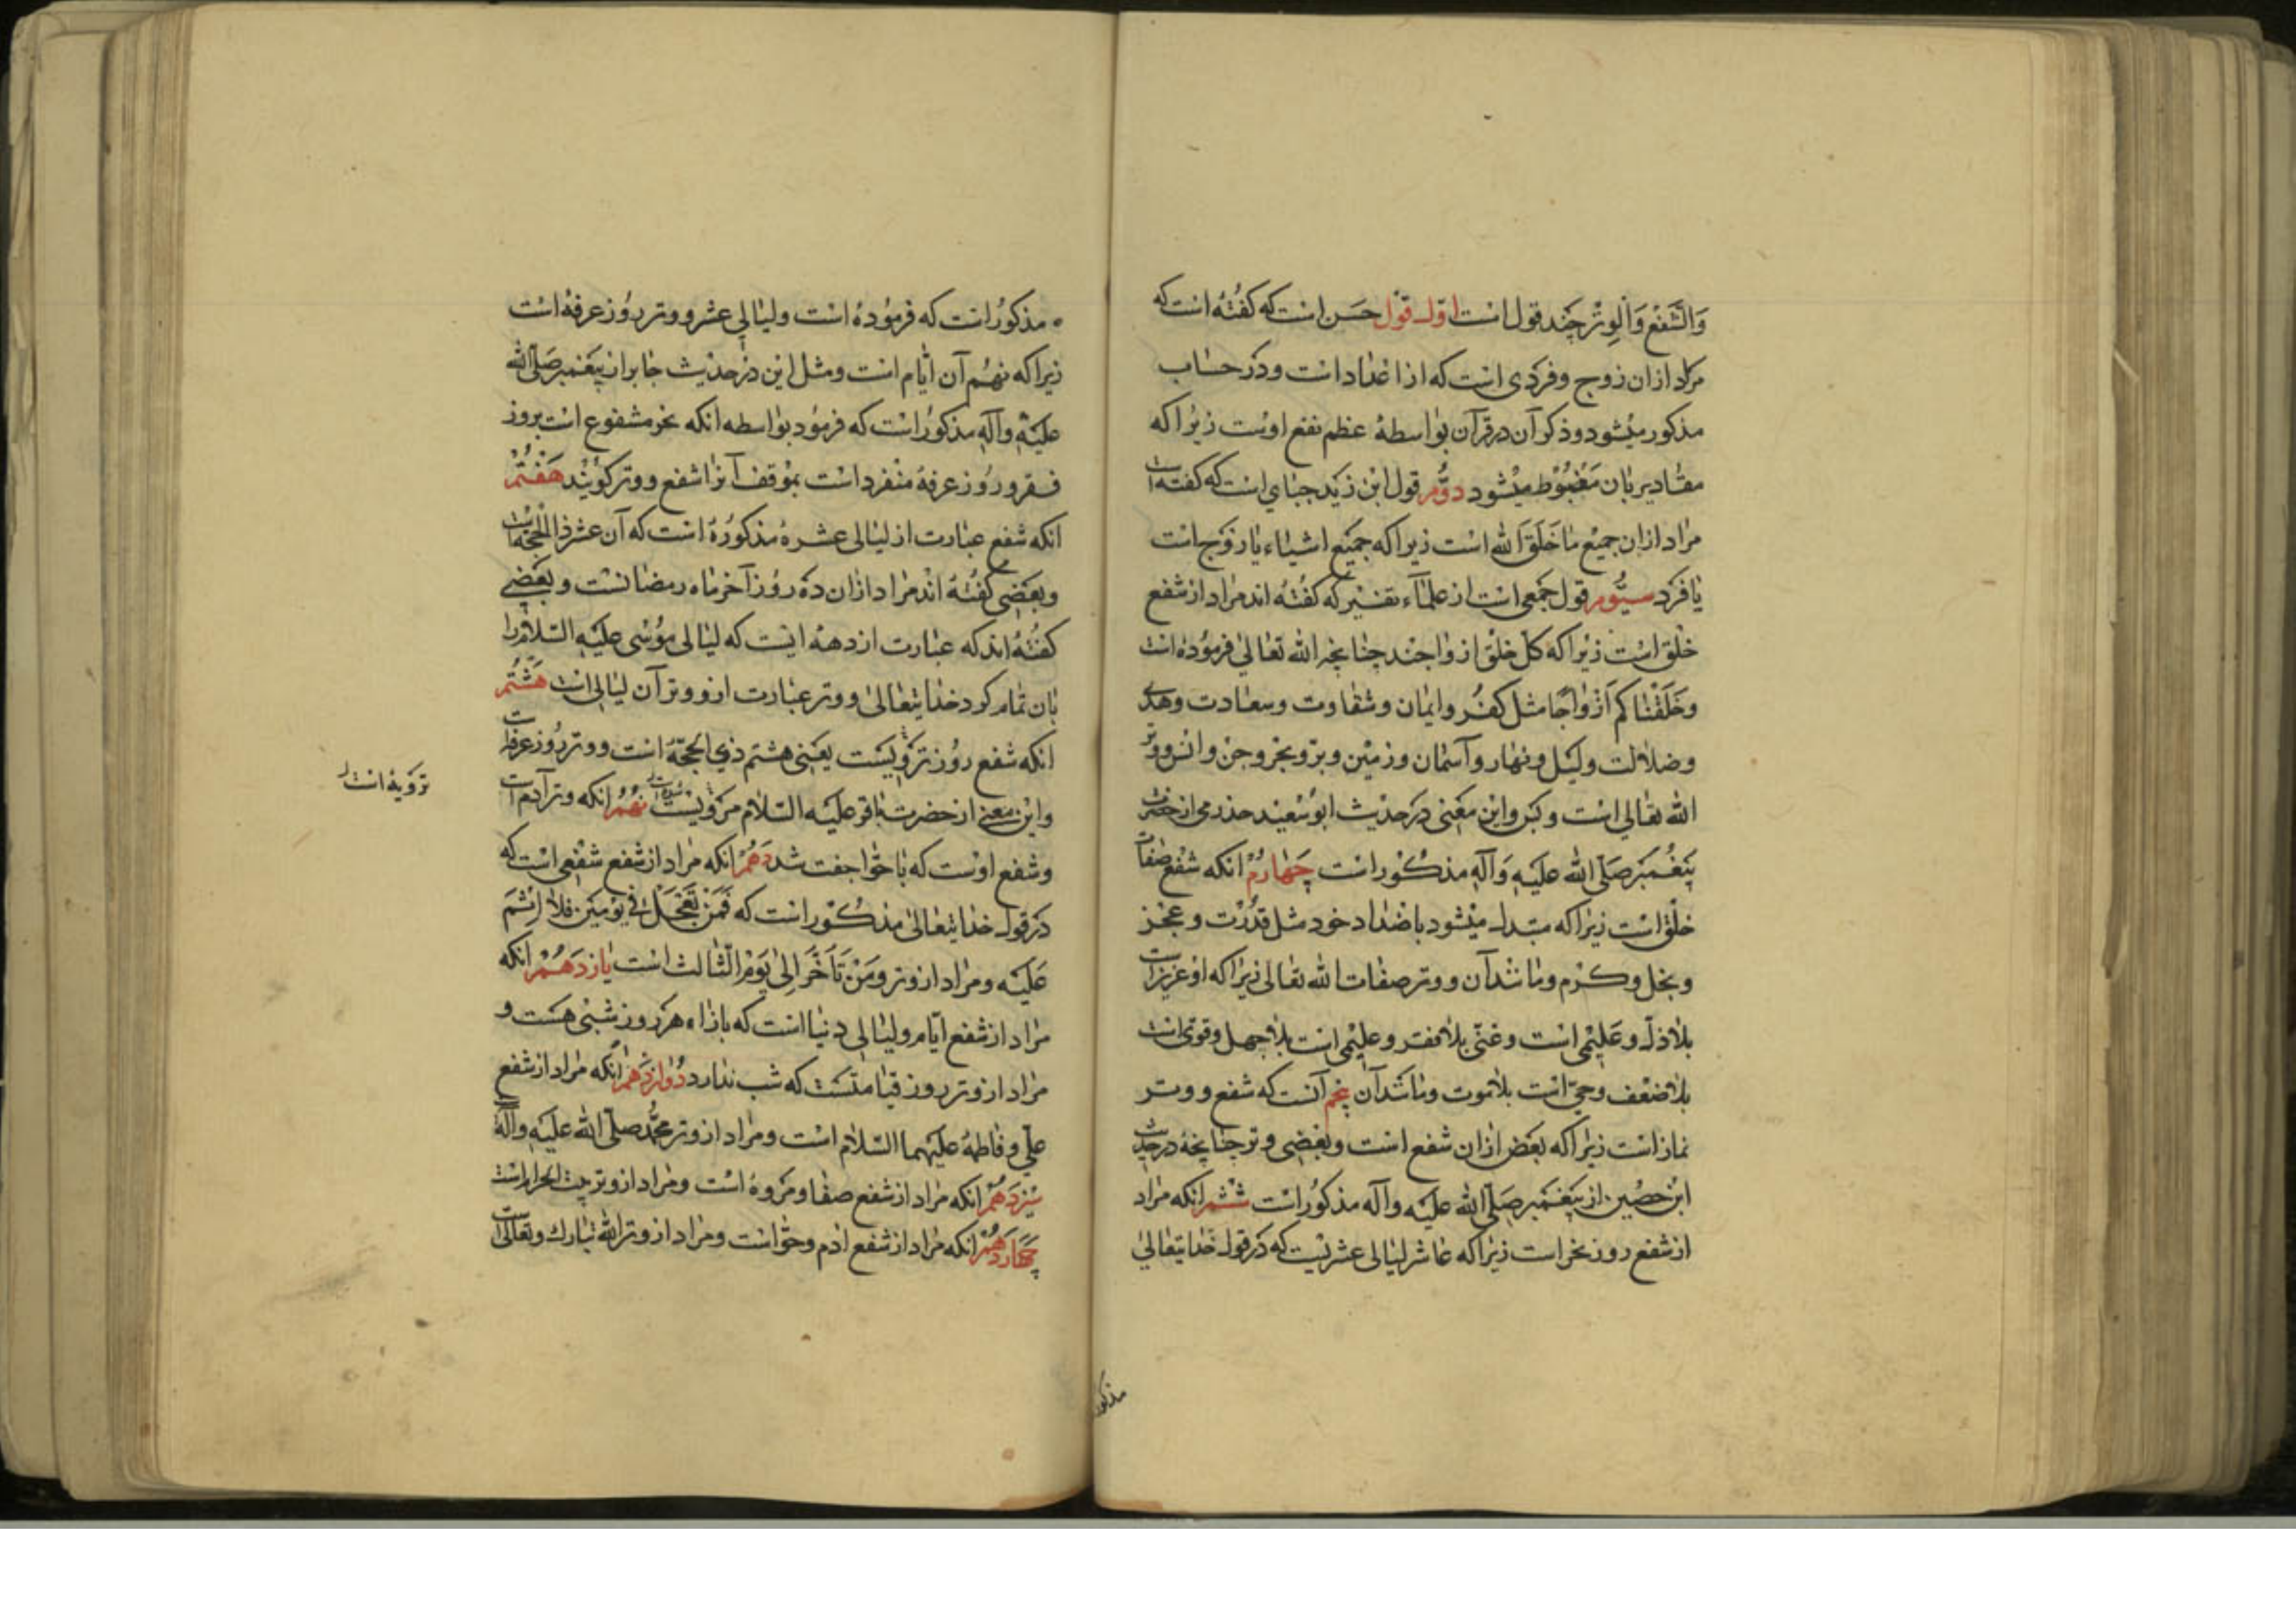 وَالشَّفْعِ وَالْوِتْرِ چند قول است اوّل قول حَسَن است که گفته است که
مراد ازان زوج و فردی است که از اعداد است و در حساب
مذکور میشود و ذکر آن در قرآن بواسطهٔ عظم نفع اوست زیرا که
مقادیر بآن مضبوط میشود دوّم قول ابن زید جبایی است که گفته است
مراد ازان جمیع ما خَلَقَ الله است زیرا که جمیع اشیاء یا زوج است
یا فرد سیّوم قول جمعی است از علمآء تفسیر که گفته اند مراد از شفع
خلق است زیرا که کلّ خلق ازواجند چنانچه الله تعالی فرموده است
وخَلَقْنَاکم اَزْوَاجًا مثل کفر و ایمان و شقاوت و سعادت و هدی
و ضلالت و لیل و نهار و آسمان و زمین و برّ و بحر و جنّ و انس و وتر
الله تعالی است و بس و این معنی در حدیث ابو سعید حذرمی از حضرت
پیغمبر صلّی الله علیه وآله مذکور است چهارم انکه شفع صفات
خلق است زیرا که مبدل میشود باضداد خود مثل قدرت و عجز
و بخل و کرم و مانند آن و وتر صفات الله تعالی زیرا که او عزیز است
بلا ذلّ و علیمی است و غنّی بلا فقر و علیمی است بلا جهل و قوی است
بلا ضعف و حیّ است بلا موت و مانند آن پنجم آنست که شفع و وتر
نماز است زیرا که بعض ازان شفع است و بعضی وتر چنانچه در حدیث
ابن حصین از پیغمبر صلّی الله علیه وآله مذکور است ششم انکه مراد
از شفع روز نحر است زیرا که عاشر لیالی عشریست که در قول خدایتعالی
مذکور
مذکور است که فرموده است ولیالی عشر و وتر روز عرفه است
زیرا که نهم آن ایّام است و مثل این در حدیث جابر از پیغمبر صلّی الله
علیه وآله مذکور است که فرمود بواسطه انکه نحر مشفوع است بروز
و روز عرفه منفرد است بموقف آنرا شفع و وتر گویند هفتم
انکه شفع عبارت از لیالی عشرهٔ مذکوره است که آن عشر ذالحجّه است
و بعضی گفته اند مراد ازان ده روز آخر ماه رمضانست و بعضی
گفته اند که عبارت از دههٔ ایست که لیالی موسی علیه السّلام را
بآن تمام کرد خدایتعالی و وتر عبارت از وتر آن لیالی است هشتم
انکه شفع روز ترویست یعنی هشتم ذی الحجّه است و وتر روز عرفه است
ترویه است
و این معنی از حضرت باقر علیه السّلام مرویست نهم انکه وتر آدم است
و شفع اوست که با حوّا جفت شد دهم انکه مراد از شفع شفعی است که
در قول خدایتعالی مذکور است که فَمَنْ تَعَجَّلَ فی یَوْمَیْنِ فلا اِثْمَ
عَلَیْه و مراد از وتر ومَنْ تَأَخَّرَ اِلی یَوْمِ الثّالث است یازدهم انکه
مراد از شفع ایّام و لیالی دنیا است که بازاء هر روز شبی هست و
مراد از وتر روز قیامتست که شب ندارد دوازدهم انکه مراد از شفع
علی و فاطمه علیهما السّلام است و مراد از وتر محمّد صلّی الله علیه وآله
سیزدهم انکه مراد از شفع صفا و مروه است و مراد از وتر بیت الحرام است
چهاردهم انکه مراد از شفع آدم و حوّا است و مراد از وتر الله تبارك وتعالی است